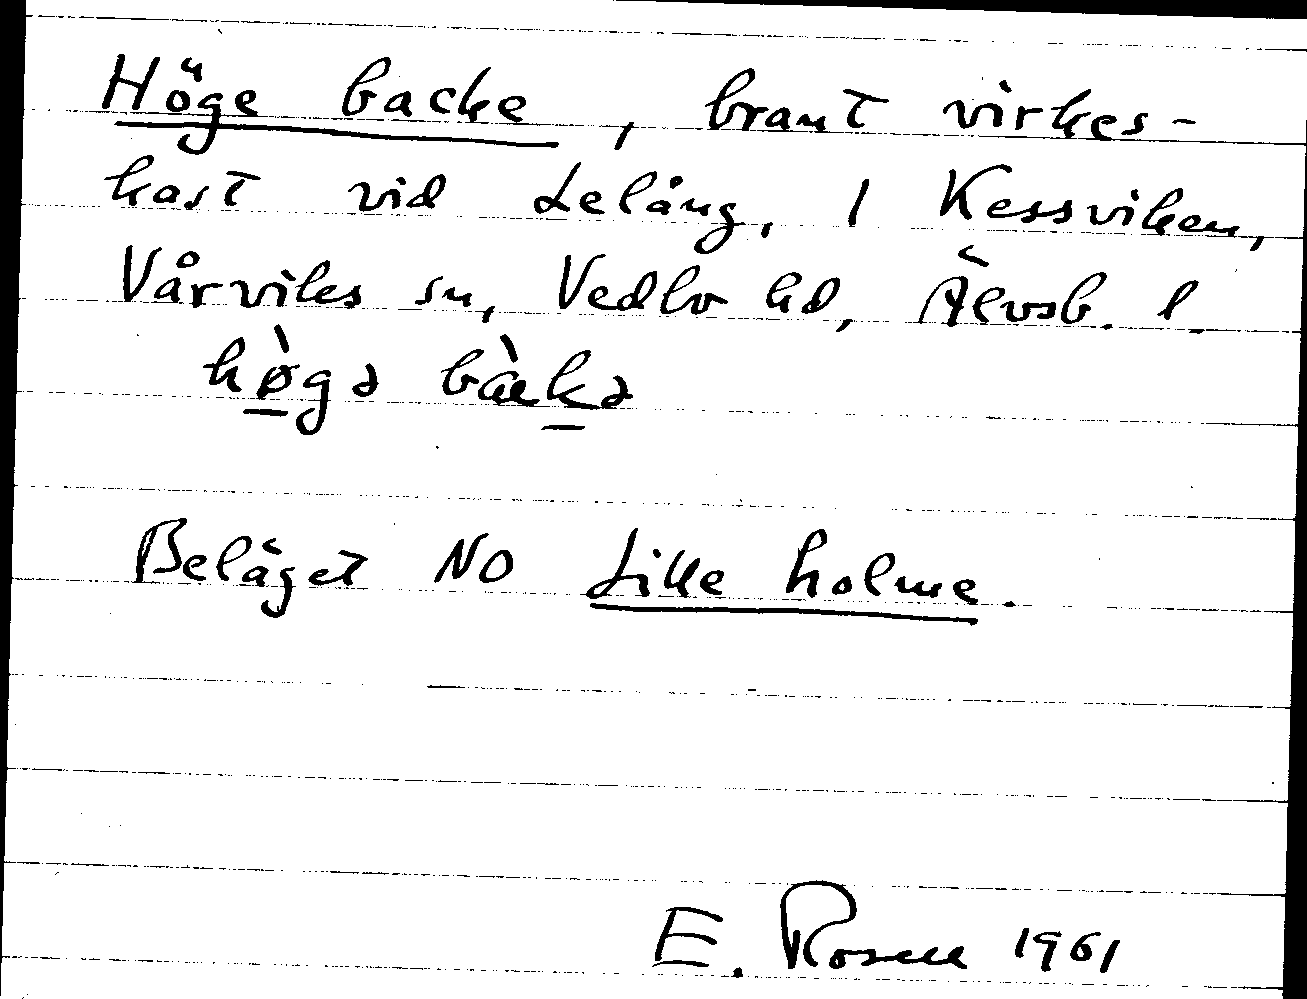 Höge backe, brant virkes-
kast vid Lelång, I Kessviken,
Vårviks sn, Vedbo hd, Älvsb. l.
hø̀gə bàkə
Beläget NO Lille holme.
E. Rosell 1961